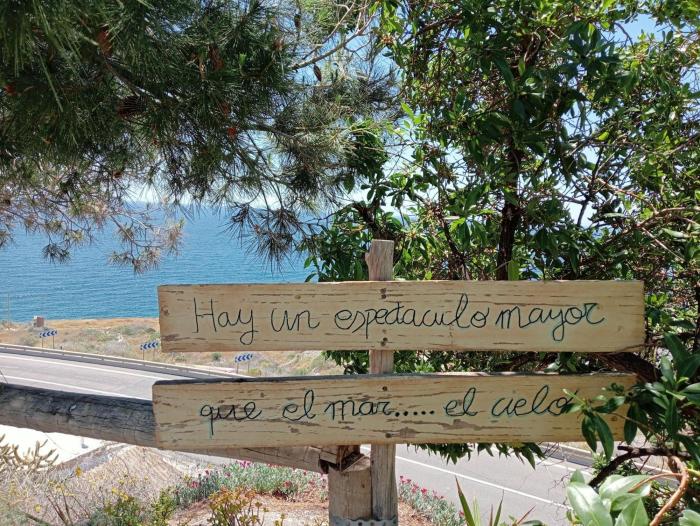 Hay un espectaculo mayor
que el mar..... el cielo